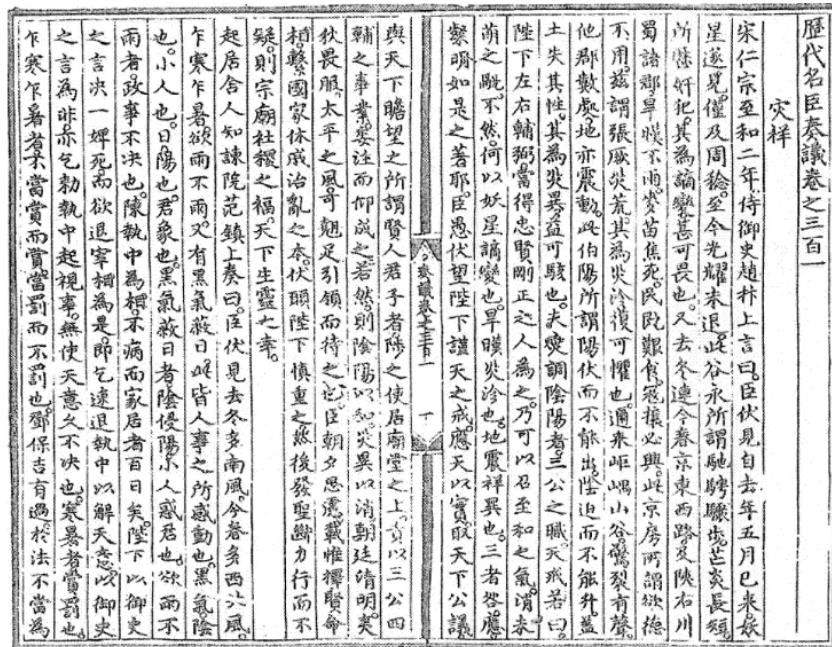 歷代名臣奏議卷之三百一
災祥
宋仁宗至和二年侍御史趙抃上言曰臣伏見自去年五月已來妖
星遂見僅及周稔至今光耀未退此谷永所謂馳騁驟步芒炎長短
所歷奸犯其為謫變甚可畏也又去冬連今春京東西路及陝右川
蜀諸郡旱暵不雨麥苗焦死民既艱食寇攘必興此京房所謂欲德
不用茲謂張厥災荒其為災沴復可懼也邇來岠嵎山谷驚裂有聲
他郡數處地亦震動此伯陽所謂陽伏而不能出陰迫而不能升蓋
土失其性其為災異益可駭也夫燮調陰陽者三公之職天戒若曰
陛下左右輔弼當得忠賢剛正之人為之乃可以召至和之氣消未
萌之眚不然何以妖星謫變也旱暵災沴也地震祥異也三者咎應
繫晰如是之著耶臣愚伏望陛下謹天之戒應天以實取天下公議
奏議卷之三百一
與天下瞻望之所謂賢人君子者陟之使居廟堂之上責以三公四
輔之事業委注而仰成之若然則陰陽以和災異以消朝廷清明夷
狄畏服太平之風可翹足引領而待之也臣朝夕思慮載惟擇賢命
相繫國家休戚治亂之本伏願陛下慎重之然後發聖斷力行而不
疑則宗廟社稷之福天下生靈之幸
起居舍人知諫院范鎮上奏曰臣伏見去冬多南風今春多西北風
乍寒乍暑欲雨不雨又有黑氣蔽日此皆人事之所感動也黑氣陰
也小人也日陽也君象也黑氣蔽日者陰侵陽小人惑君也欲雨不
雨者政事不决也陳執中為相不病而家居者百日矣陛下以御史
之言决一婢死而欲退宰相為是即乞速退執中以解天意以御史
之言為非亦乞勑執中起視事無使天意久不决也寒暑者賞罰也
乍寒乍暑者不當賞而賞當罰而不罰也鄧保吉有過於法不當為